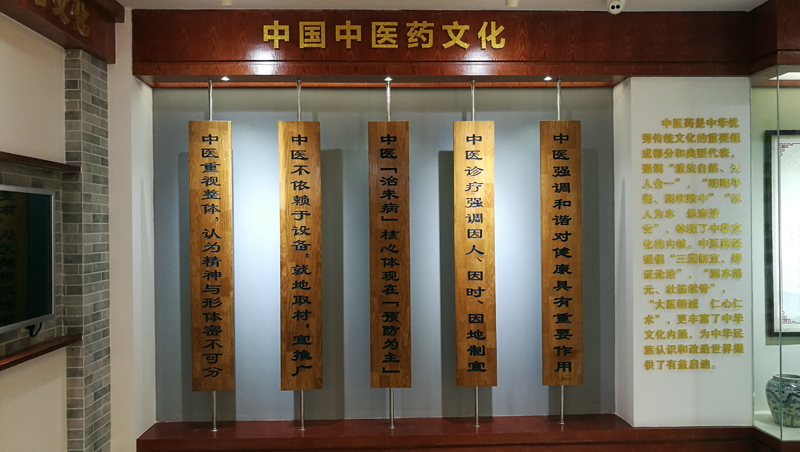 中国中医药文化
中医重视整体，认为精神与形体密不可分
中医不依赖于设备，就地取材，宜推广
中医「治未病」核心体现在「预防为主」
中医诊疗强调因人、因时、因地制宜
中医强调和谐对健康具有重要作用
中医药是中华优
秀传统文化的重要组
成部分和典型代表，
强调“道法自然、天
人合一”，“阴阳平
衡、调和致中”“以
人为本 悬壶济
世”，体现了中华文
化的内核。中医药还
提倡“三因制宜、辨
证论治”，“固本培
元、壮筋续骨”，
“大医精诚 仁心仁
术”，更丰富了中华
文化内涵，为中华民
族认识和改造世界提
供了有益启迪。